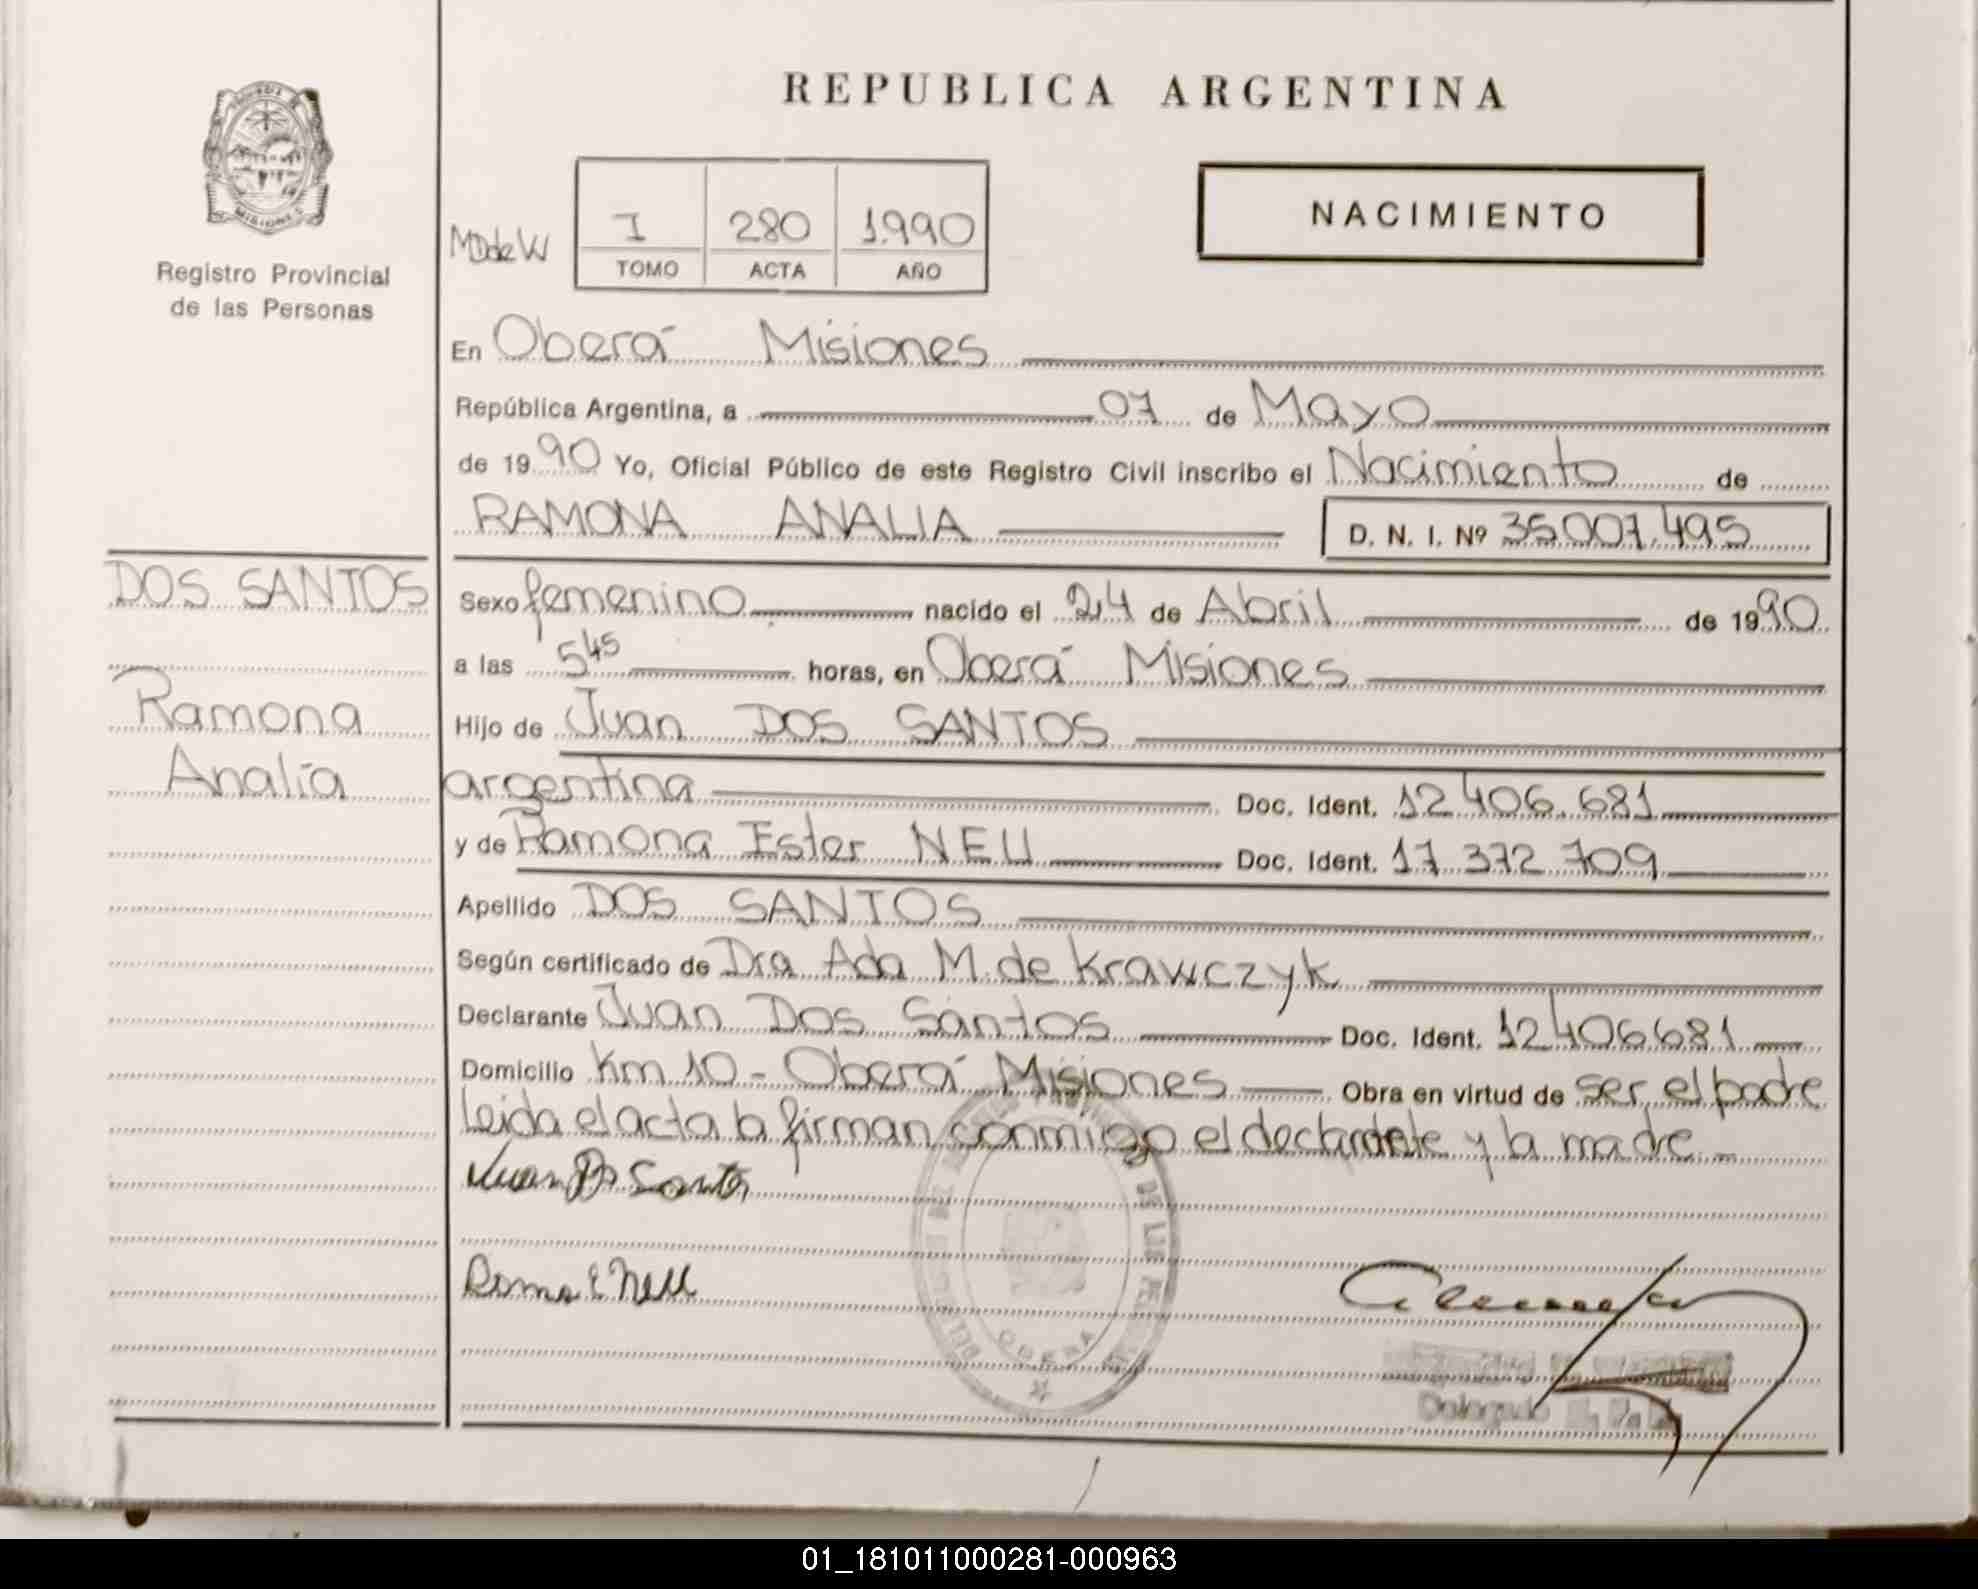 REPUBLICA ARGENTINA
MISIONES
Registro Provincial
de las Personas
MDdeW
I 280 1.990
TOMO ACTA AÑO
NACIMIENTO
En Oberá Misiones
República Argentina, a 07 de Mayo
de 1990 Yo, Oficial Público de este Registro Civil inscribo el Nacimiento de
RAMONA ANALIA D. N. I. Nº 35.007.495
DOS SANTOS
Ramona
Analía
Sexo femenino nacido el 24 de Abril de 1990
a las 5 45 horas, en Oberá Misiones
Hijo de Juan DOS SANTOS
argentina Doc. Ident. 12.406.681
y de Ramona Ester NEU Doc. Ident. 17 372 709
Apellido DOS SANTOS
Según certificado de Dra Ada M. de Krawczyk
Declarante Juan Dos Santos Doc. Ident. 12406681
Domicilio Km 10 - Oberá Misiones Obra en virtud de ser el padre
Leida el acta la firman conmigo el declarante y la madre
Juan D Santos
OBERA
Delegado
01_181011000281-000963